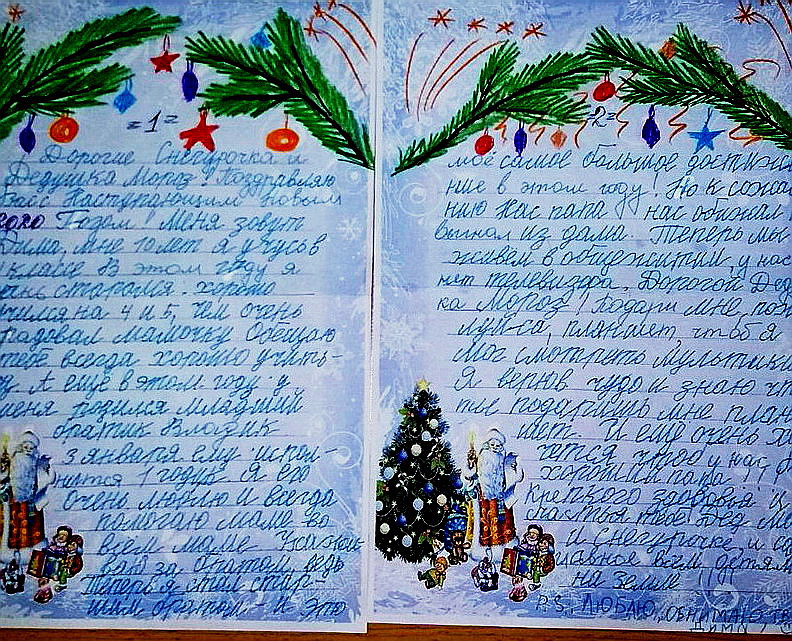 =1=
Дорогие Снегурочка и
Дедушка Мороз! Поздравляю
Вас с Наступающим Новым
Годом! Меня зовут
Дима, мне 10 лет я учусь в
классе. В этом году я
старался. хорошо
учился на 4 и 5, чем очень
радовал мамочку Обещаю
тебе всегда хорошо учить-
А ещё в этом году у
меня родился младший
братик Владик
3 января ему испол-
нится 1 годик. Я его
очень люблю и всегда
помогаю маме во
всём маме. Ухажи-
ваю за братом, ведь
Теперь я стал стар-
шим братом - и это
=2=
моё самое большое достиже
ние в этом году! Но к сожале
нию Нас папа нас обижал и
выгнал из дома. Теперь мы
живем в общежитии, у нас
нет телевизора, Дорогой Дед
ка Мороз! Подари мне, пож
луйса, планшет, чтобы я
мог смотреть мультики
Я верю в чудо и знаю чт
ты подаришь мне план
шет. И ещё очень х
чется чтоб у нас
хороший папа
крепкого здоровья и
счастья тебе Дед Мо
и Снегурочке, и са
главное всем детям
на земле
P.S. Люблю, обнимаю,
Дима